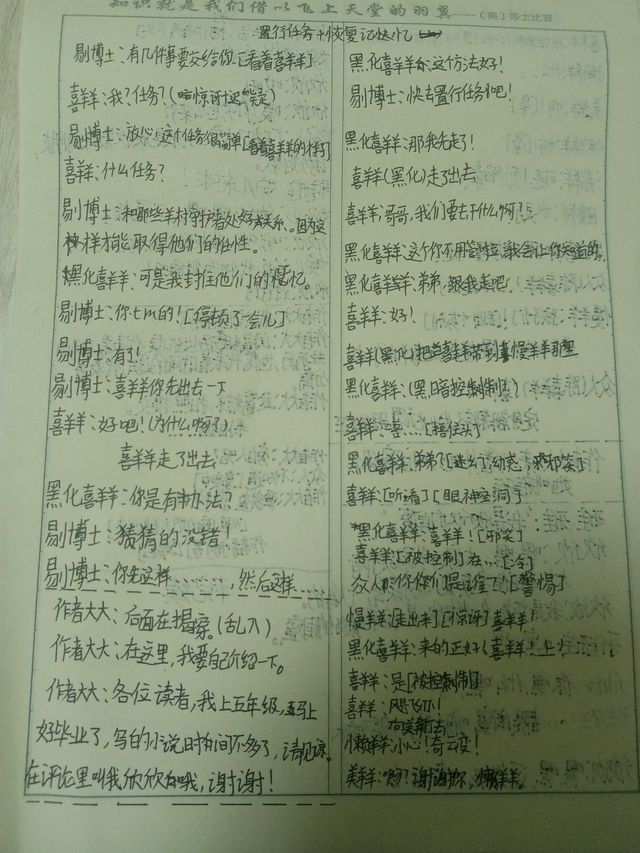 知识就是我们借以飞上天堂的羽翼——(英)莎士比亚
置行任务+恢复记忆
剔博士:有几件事要交给你[看着喜羊羊]
喜羊羊:我?任务?(惊讶迟疑)
剔博士:放心!这个任务很简单[看着喜羊羊的样子]
喜羊羊:什么任务?
剔博士:和那些羊村守护者处好关系。因为这
样才能取得他们的任性。
黑化喜羊羊:可是我封住他们的记忆。
剔博士:你tm的![停顿了一会儿]
剔博士:有了!
剔博士:喜羊羊你先出去一下
喜羊羊:好吧!(为什么啊?)
喜羊羊走了出去
黑化喜羊羊:你是有办法?
剔博士:猜猜的没错!
剔博士:你先这样………,然后这样……
作者大大:后面在揭察。(乱入)
作者大大:在这里,我要自己介绍一下。
作者大大:各位读者,我上五年级,马上
好毕业了,写的小说时间不多了,请见谅。
在评论里叫我欣欣哦,谢谢!
黑化喜羊羊:这个方法好!
剔博士:快去置行任务吧!
黑化喜羊羊:那我先走了!
喜羊羊(黑化)走了出去
喜羊羊:哥哥,我们要去干什么啊?
黑化喜羊羊:这个你不用管,我会让你知道的。
黑化喜羊羊:弟弟,跟我走吧。
喜羊羊:好!
喜羊羊(黑化)把喜羊羊带到慢羊羊那里
黑化喜羊羊:(黑暗控制!)
喜羊羊:嘻…[捂住头]
黑化喜羊羊:弟弟?[邪笑]
喜羊羊:[听着][眼神空洞]
黑化喜羊羊:喜羊羊![邪笑]
喜羊羊:[被控制]在…[冷]
众人:你你们是谁?![警惕]
慢羊羊[走出来][惊讶]喜羊羊!
黑化喜羊羊:来的正好(喜羊羊!上!
喜羊羊:是[被控制]
喜羊羊:飓飞爪!
向美羊羊去
懒羊羊:小心!奇云变!
美羊羊:啊?谢谢你,懒羊羊。